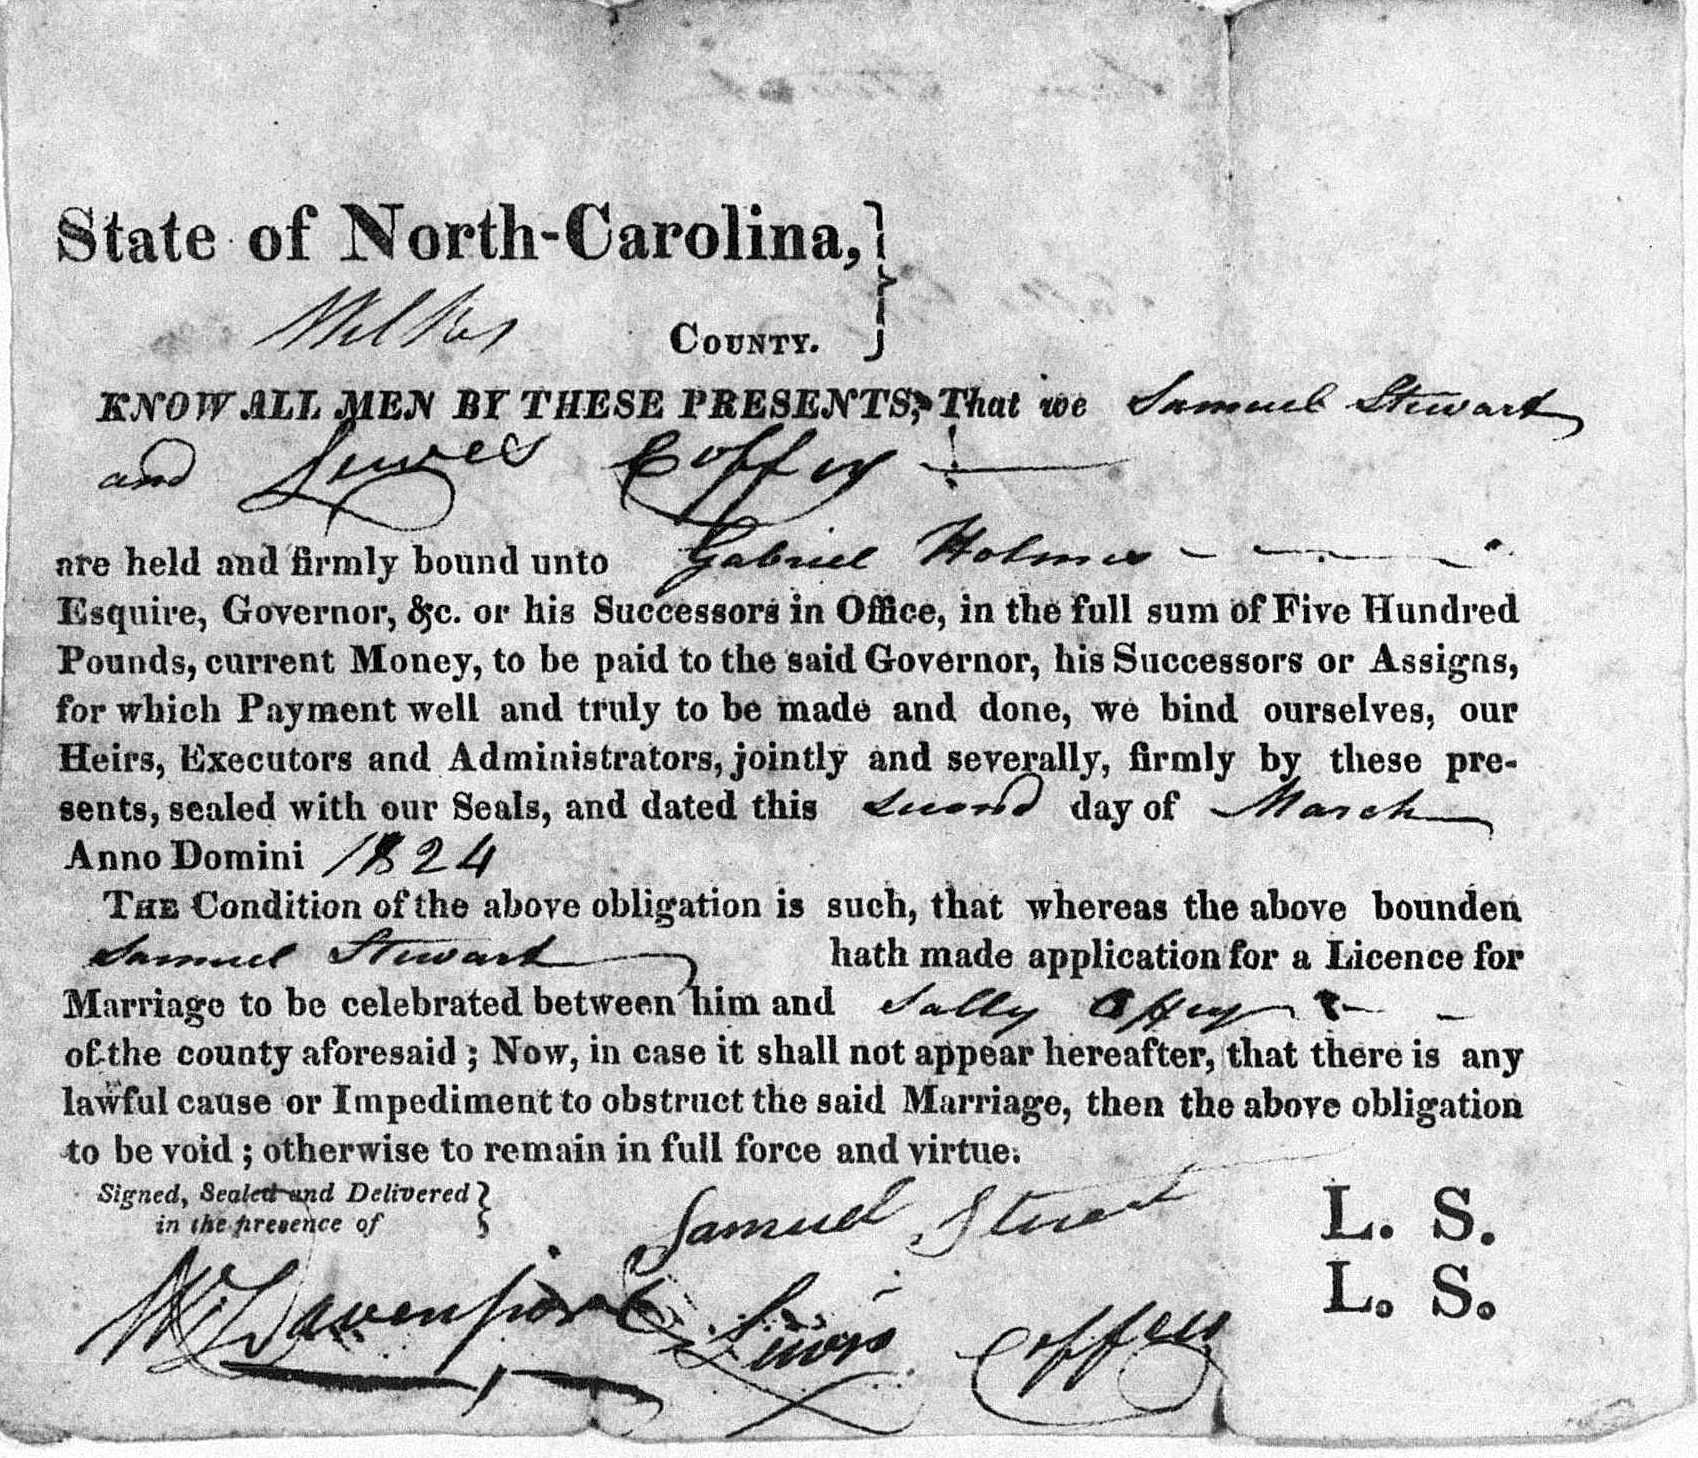 State of North-Carolina,
Wilkes County.
KNOW ALL MEN BY THESE PRESENTS, That we Samuel Stewart
and Lewes Coffey
are held and firmly bound unto Gabriel Holmes
Esquire, Governor, &c. or his Successors in Office, in the full sum of Five Hundred
Pounds, current Money, to be paid to the said Governor, his Successors or Assigns,
for which Payment well and truly to be made and done, we bind ourselves, our
Heirs, Executors and Administrators, jointly and severally, firmly by these pre-
sents, sealed with our Seals, and dated this second day of March
Anno Domini 1824
THE Condition of the above obligation is such, that whereas the above bounden
Samuel Stewart hath made application for a Licence for
Marriage to be celebrated between him and Sally Coffey
of the county aforesaid; Now, in case it shall not appear hereafter, that there is any
lawful cause or Impediment to obstruct the said Marriage, then the above obligation
to be void; otherwise to remain in full force and virtue.
Signed, Sealed and Delivered
in the presence of
Samuel Stuart L. S.
W. Davenport Lewis Coffey L. S.